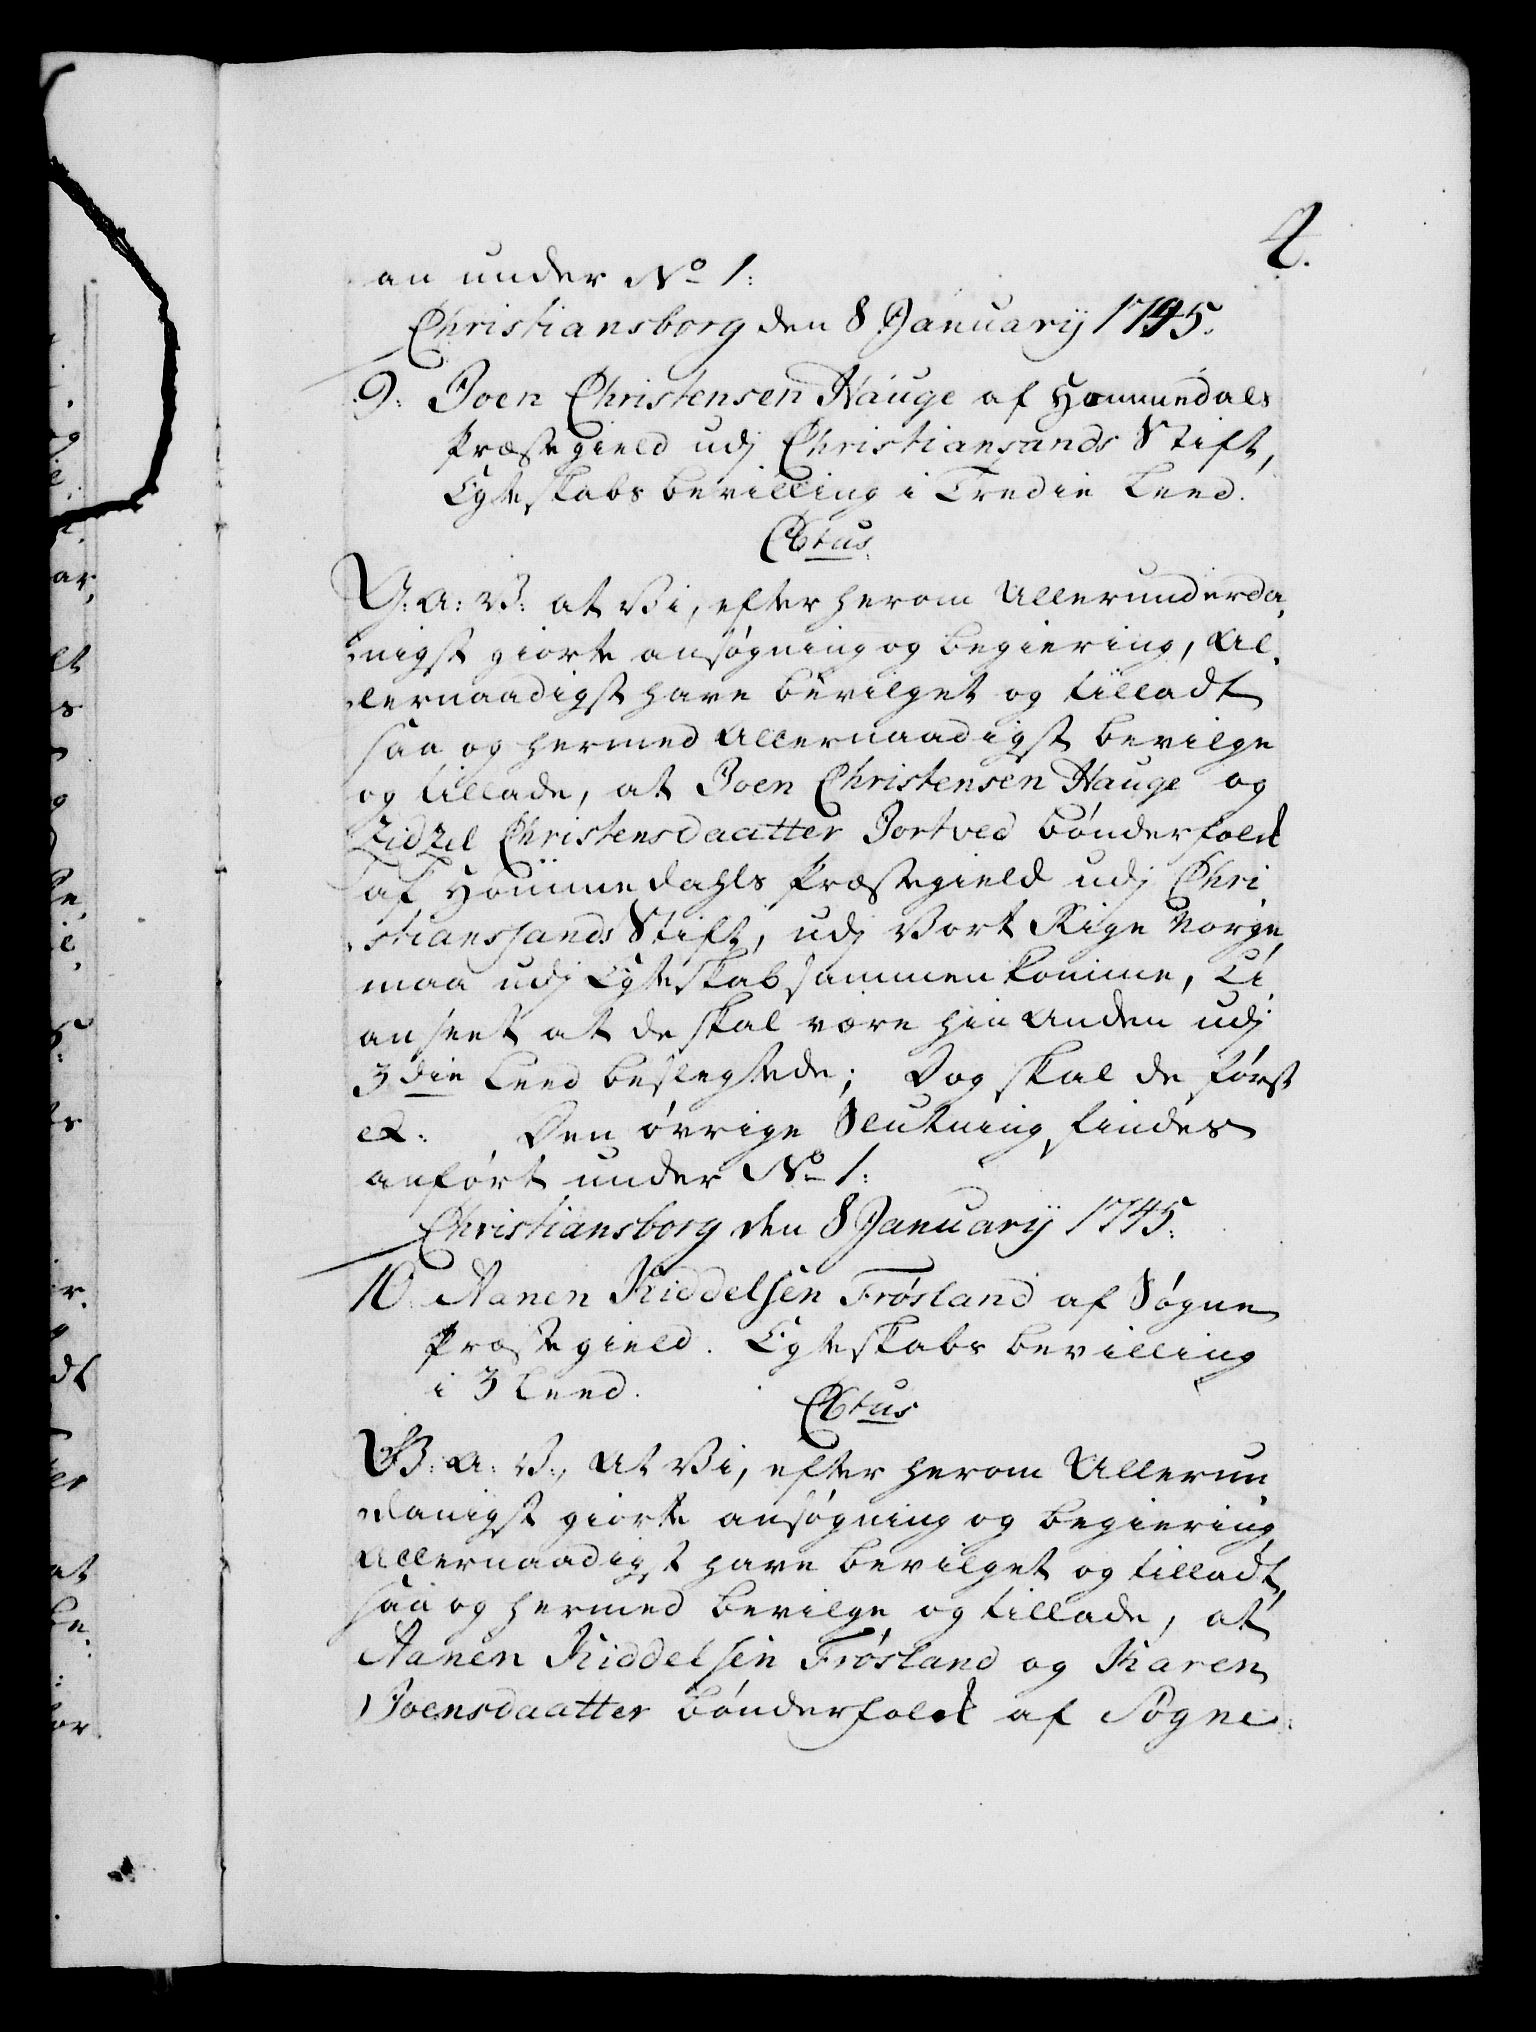 4.
an under No 1:
Christiansborg den 8 Januarij 1745.
9. Joen Christensen Hauge af Hommedals
Præstegield udj Christiansands Stift,
Egteskabs bevilling i Tredie Leed.
C6tus
G: A: V: at Vi, efter herom Allerunderda-
nigst giorte ansøgning og begiering, Al-
lernaadigst have bevilget og tilladt
saa og hermed Allernaadigst bevilge
og tillade, at Joen Christensen Hauge og
Zidzel Christensdaatter Jortved bønderfolck
af Hommedahls Præstegield udj Chri-
stianssands Stift, udj Vort Rige Norge
maa udj Egteskab sammenkomme, U-
anseet at de skal være hin Anden udj
3die Leed beslegtede; Dog skal de først
etc: Den øvrige Slutning findes
anført under No 1:
Christiansborg den 8 Januarij 1745.
10. Aanen Kiddelsen Frøsland af Søgne
Præstegield. Egteskabs bevilling
i 3 Leed. C6tus
G: A: V:, At Vi, efter herom Allerun-
danigst giorte ansøgning og begiering
Allernaadigst have bevilget og tilladt,
saa og hermed bevilge og tillade, at
Aanen Kiddelsen Frøsland og Karen
Joensdaatter bønderfolck af Søgne